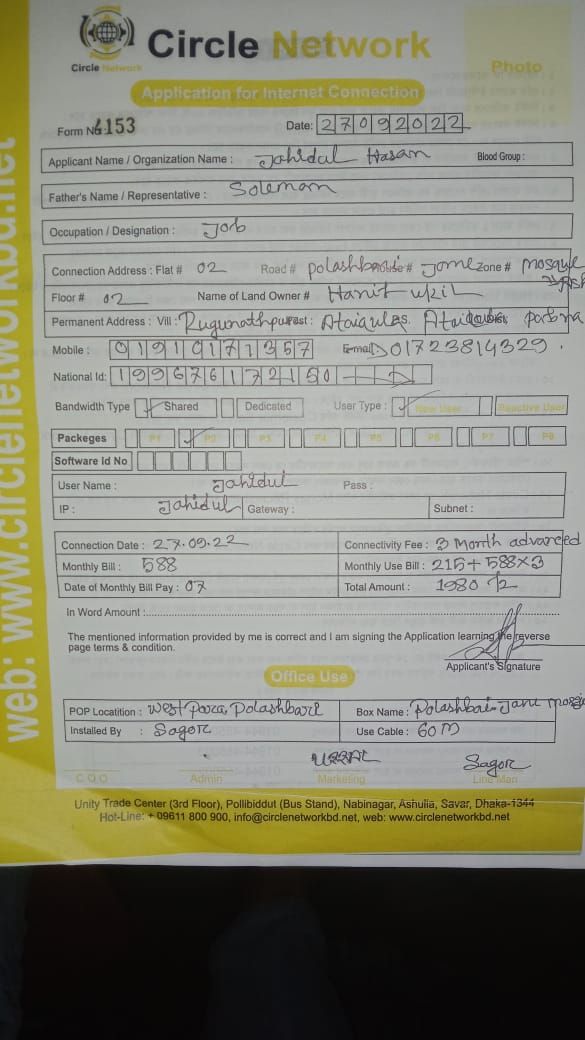 Circle Network
Circle Network
Photo
Application for Internet Connection
Form No: 6153
Date: 27092022
Applicant Name / Organization Name : Jahidul Hasan Blood Group :
Father's Name / Representative : Soleman
Occupation / Designation : Job
Connection Address : Flat # 02 Road # Polashbari House # Jome Zone # mosque
Floor # 02 Name of Land Owner # Hanif ukil
Permanent Address : Vill : Rugunathpur Post : Ataiqula
Mobile : 01910171357 E-mail 01723814329.
National Id: 199676172150
Bandwidth Type Shared Dedicated User Type : New User Reactive User
Packeges P1 P2 P3 P4 P5 P6 P7 P8
Software Id No
User Name : Jahidul Pass :
IP : Jahidul Gateway : Subnet :
Connection Date : 27.09.22 Connectivity Fee : 3 Month advanced
Monthly Bill : 588 Monthly Use Bill : 215+588×3
Date of Monthly Bill Pay : 07 Total Amount : 1980
In Word Amount :
The mentioned information provided by me is correct and I am signing the Application learning the reverse
page terms & condition.
Applicant's Signature
Office Use
POP Locatition : West Para, Polashbari Box Name : Polashbari Jame
Installed By : Sagor Use Cable : 60 M
Sagor
C.O.O Admin Marketing Line Man
Unity Trade Center (3rd Floor), Pollibiddut (Bus Stand), Nabinagar, Ashulia, Savar, Dhaka-1344
Hot-Line: + 09611 800 900, info@circlenetworkbd.net, web: www.circlenetworkbd.net
web: www.circlenetworkbd.net